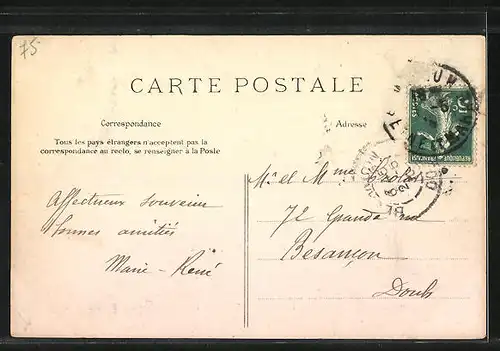 75
CARTE POSTALE
Correspondance
Adresse
Tous les pays étrangers n'acceptent pas la
correspondance au recto, se renseigner à la Poste
5c
REPUBLIQUE FRANCAISE
Affectueux Souvenir
bonnes amitiés
Marie-René
Mr et Mme
72 Grande rue
Besançon
Doubs